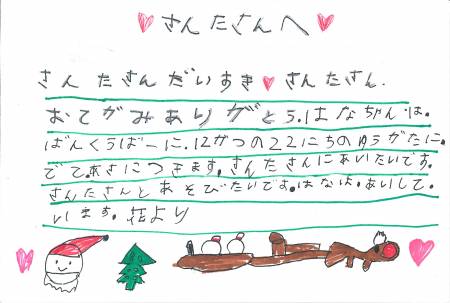 さんたさんへ
さんたさんだいすき♥さんたさん.
おてがみありがとう.はなちゃんは.
ばんくうばーに.12がつの22にちのゆうがたに.
でて.あさにつきます.さんたさんにあいたいです.
さんたさんとあそびたいです.はなは.あいして.
います.花より